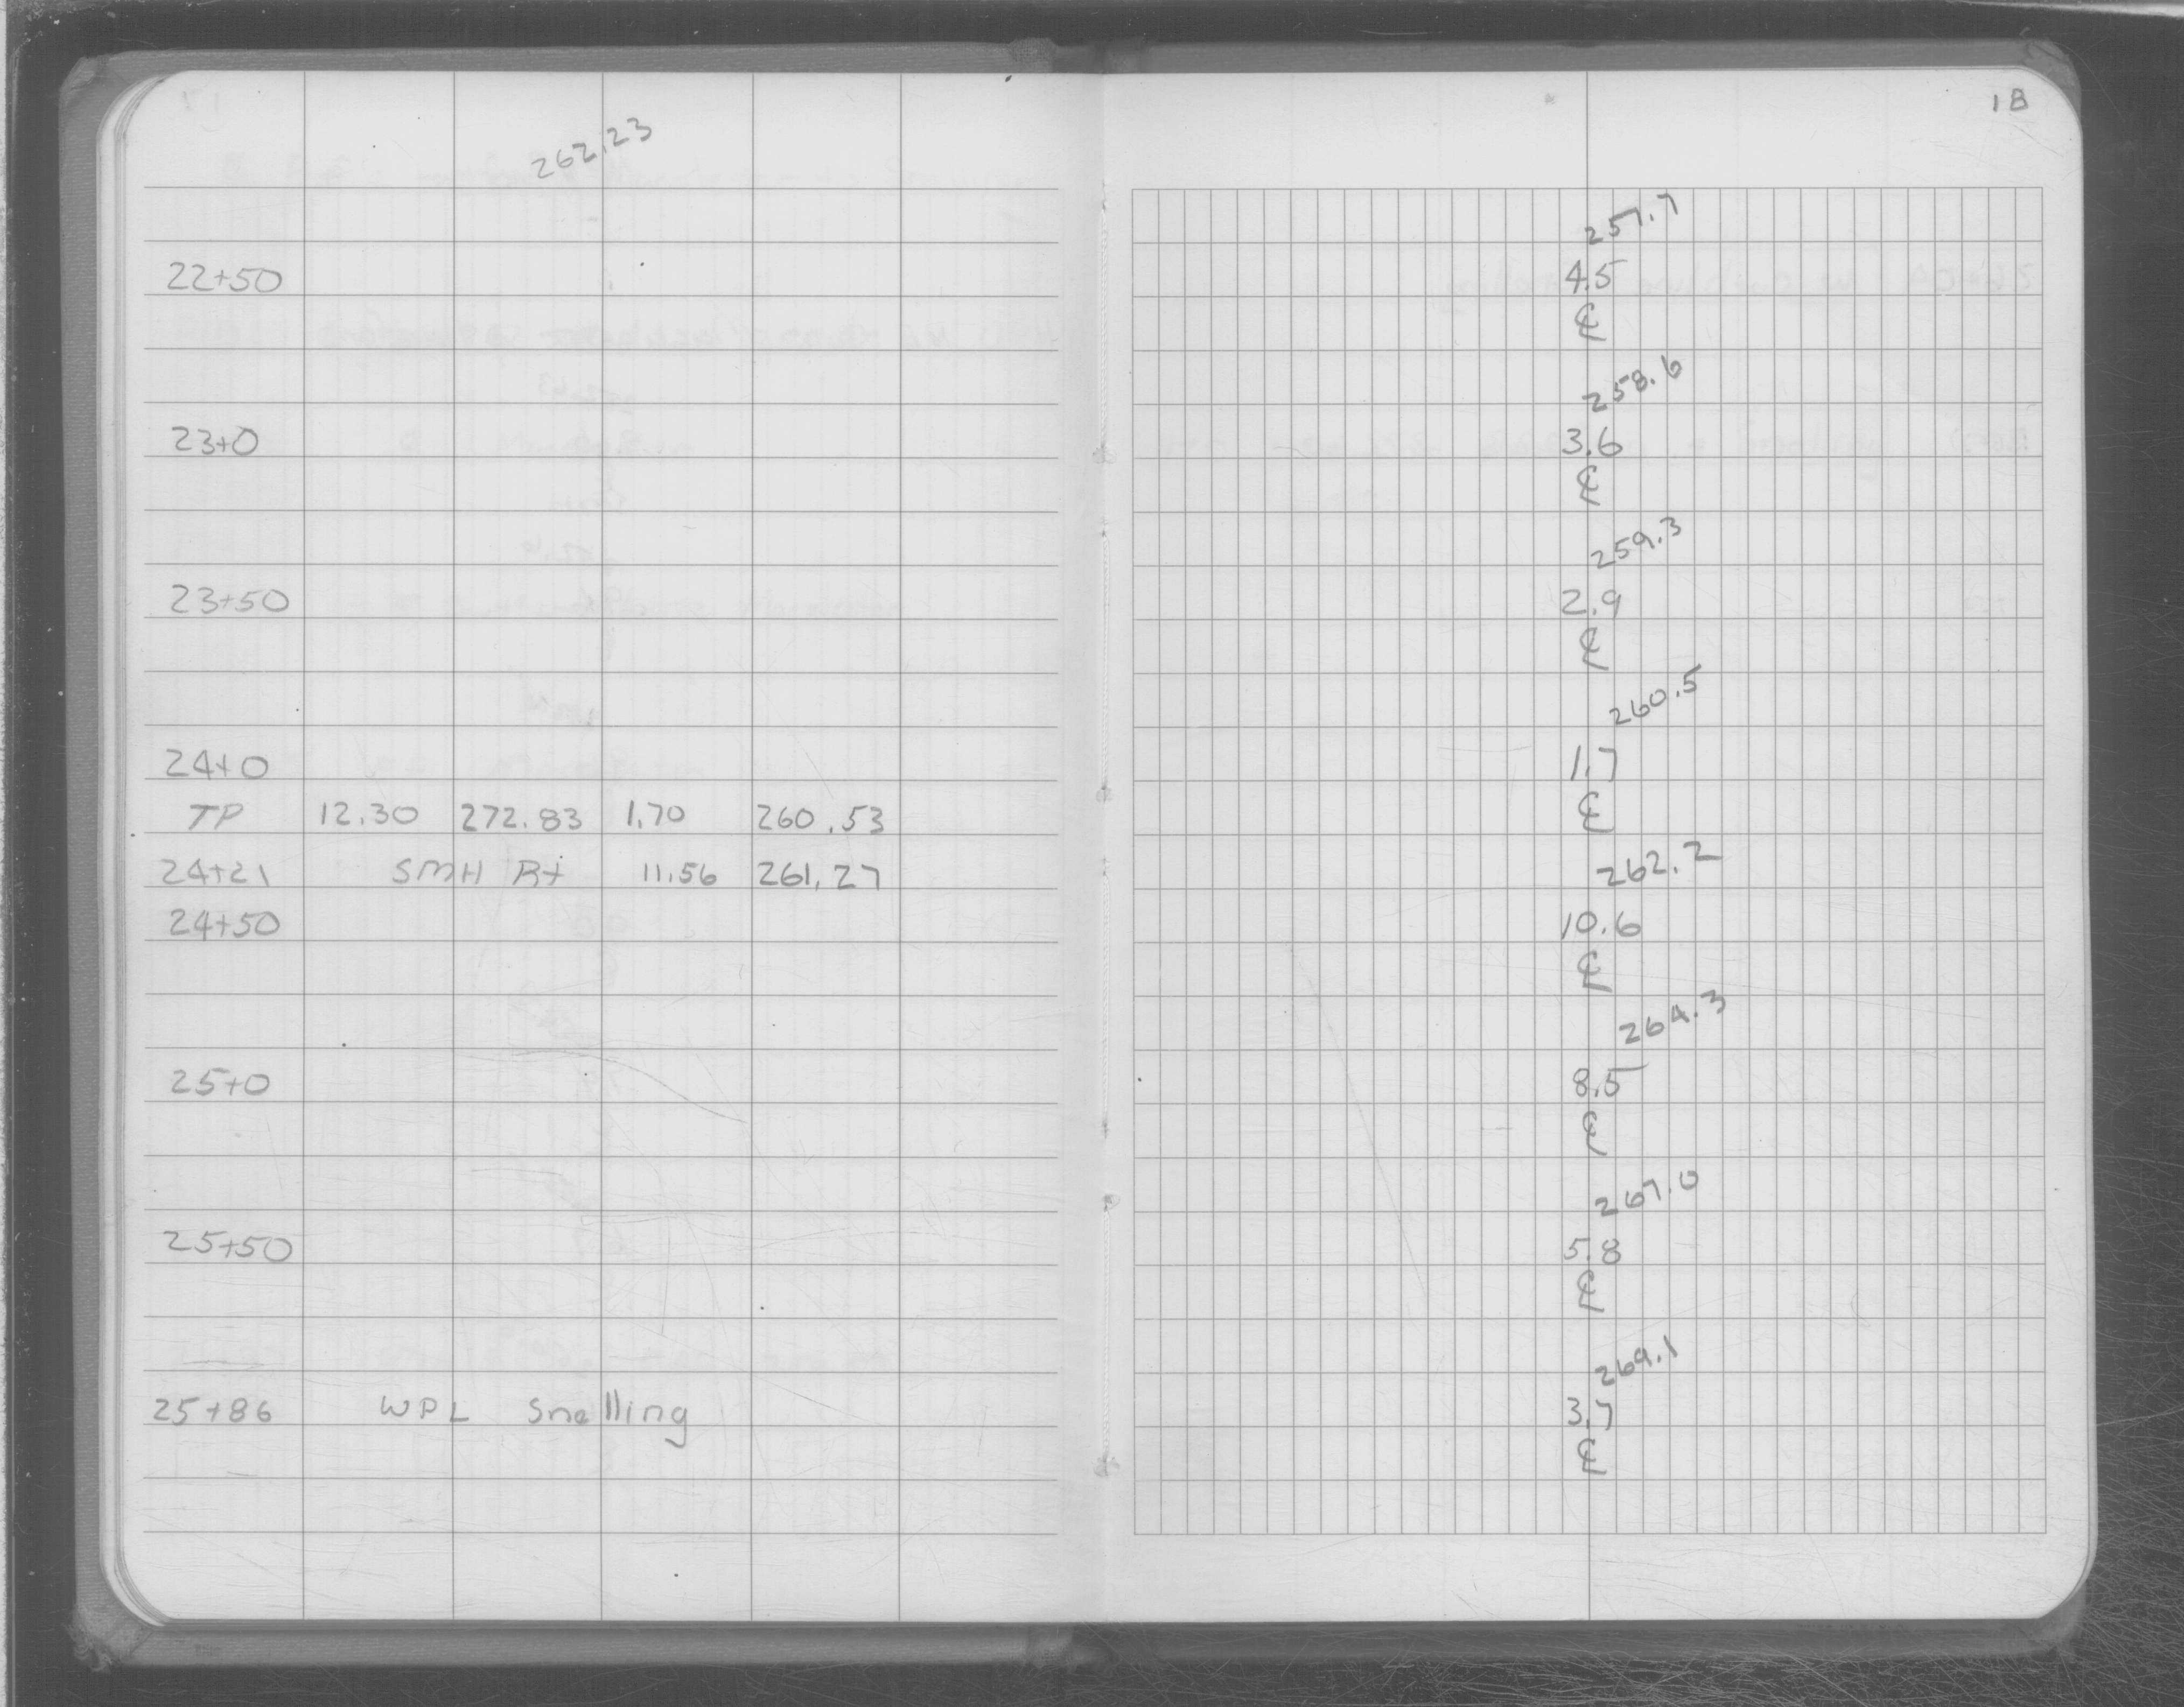 18
262.23
257.7
22+50 4.5
℄
258.6
23+0 3.6
℄
259.3
23+50 2.9
℄
260.5
24+0 1.7
TP 12.30 272.83 1.70 260.53 ℄
24+21 SMH Rt 11.56 261.27 262.2
24+50 10.6
℄
264.3
25+0 8.5
℄
267.0
25+50 5.8
℄
269.1
25+86 WPL Snelling 3.7
℄